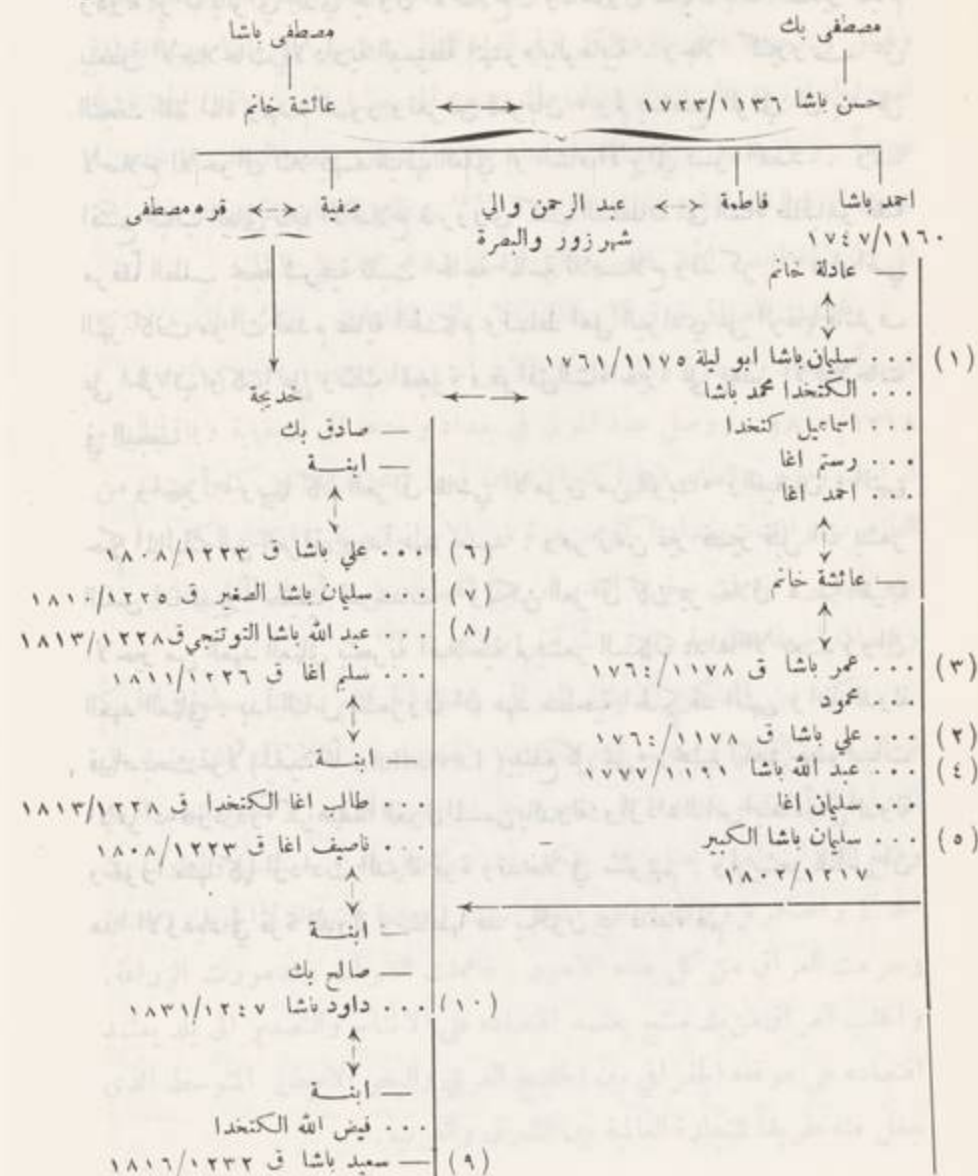 مصطفى بك
مصطفى باشا
حسن باشا ١١٣٦/١٧٢٣
عائشة خانم
احمد باشا
١١٦٠/١٧٤٧
فاطمة
عبد الرحمن والي
شهر زور والبصرة
صفية
قره مصطفى
— عادلة خانم
(١) ... سليمان باشا ابو ليلة ١١٧٥/١٧٦١
... الكتخدا محمد باشا
... اسماعيل كتخدا
... رستم اغا
... احمد اغا
— عائشة خانم
(٣) ... عمر باشا ق ١١٧٨/١٧٦٤
... محمود
(٢) ... علي باشا ق ١١٧٨/١٧٦٤
(٤) ... عبد الله باشا ١١٩١/١٧٧٧
... سليمان اغا
(٥) ... سليمان باشا الكبير
١٢١٧/١٨٠٢
خديجة
— صادق بك
— ابنــة
(٦) ... علي باشا ق ١٢٢٣/١٨٠٨
(٧) ... سليمان باشا الصغير ق ١٢٢٥/١٨١٠
(٨) ... عبد الله باشا التوتنجي ق ١٢٢٨/١٨١٣
... سليم اغا ق ١٢٢٦/١٨١١
— ابنــة
... طالب اغا الكتخدا ق ١٢٢٨/١٨١٣
... ناصيف اغا ق ١٢٢٣/١٨٠٨
— ابنــة
— صالح بك
(١٠) ... داود باشا ١٢٤٧/١٨٣١
— ابنــة
... فيض الله الكتخدا
(٩) — سعيد باشا ق ١٢٣٢/١٨١٦